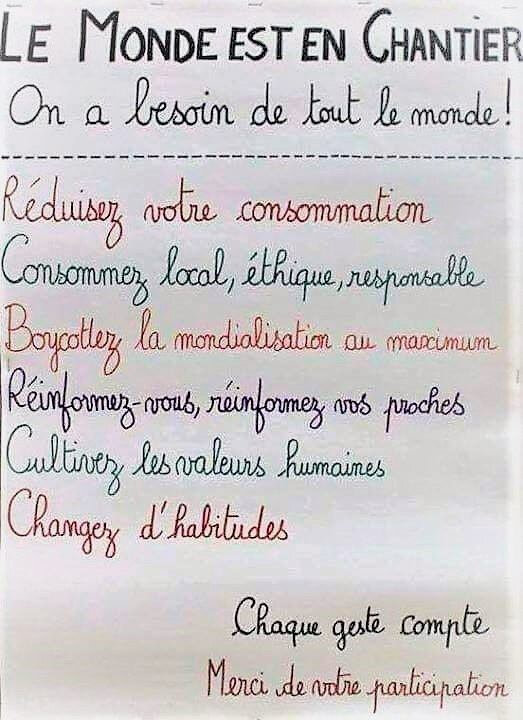 LE MONDE EST EN CHANTIER
On a besoin de tout le monde!
Réduisez votre consommation
Consommez local, éthique, responsable
Boycottez la mondialisation au maximum
Réinformez-vous, réinformez vos proches
Cultivez les valeurs humaines
Changez d'habitudes
Chaque geste compte
Merci de votre participation